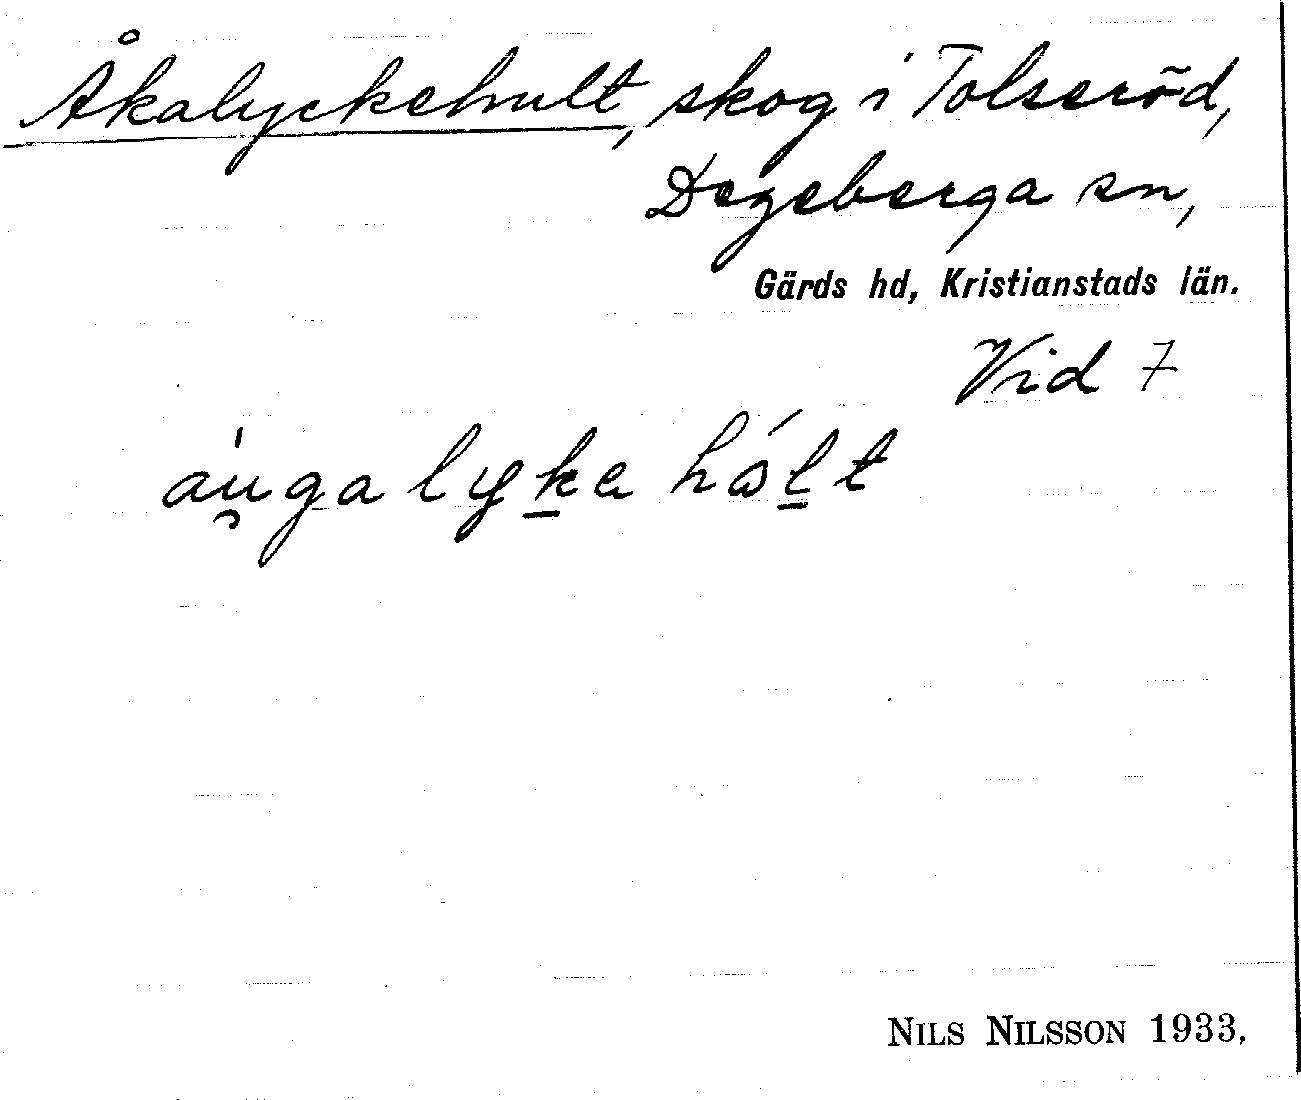 Åkalyckehult, skog i Tolseröd,
Degeberga sn,
Gärds hd, Kristianstads län.
Vid 7
au̯galyk̠e hól̠t
NILS NILSSON 1933.